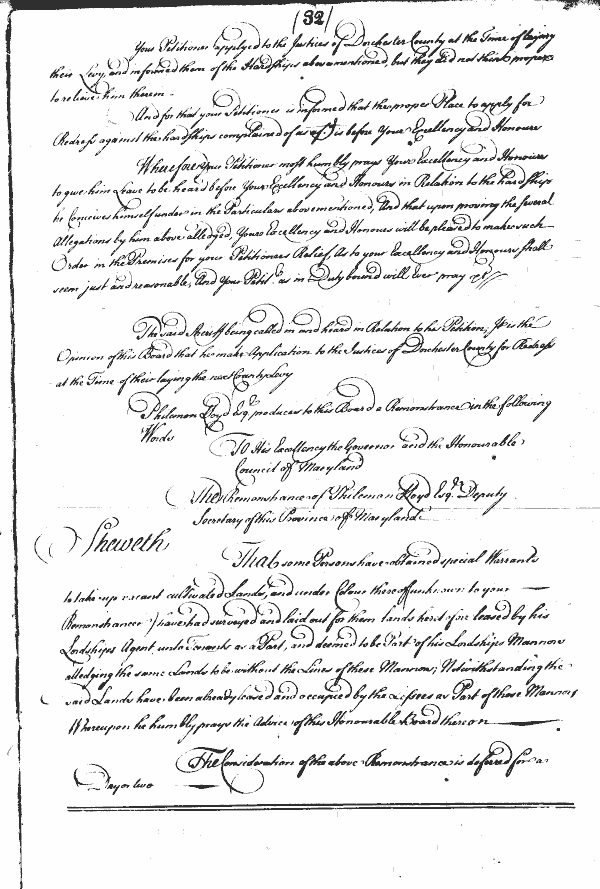 (32)
Your Petitioner applyed to the Justices of Dorchester County at the Time of laying
their Levy, and informed them of the Hardships abovementioned, but they did not think proper
to relieve him therein.
And for that your Petitioner is informed that the proper Place to apply for
Redress against the hardships complained of as is before Your Excellency and Honours
Wherefore Your Petitioner most humbly prays Your Excellency and Honours
to give him Leave to be heard before Your Excellency and Honours in Relation to the hardships
he Conceives himself under in the Particulars abovementioned, And that upon proving the several
Allegations by him above alledged, Your Excellency and Honours will be pleased to make such
Order in the Premises for your Petitioners Relief, As to your Excellency and Honours shall
seem just and reasonable, And Your Petitr. as in Duty bound will Ever pray &c
The said Sheriff being called in and heard in Relation to his Petition; It is the
Opinion of this Board that he make Application to the Justices of Dorchester County for Redress
at the Time of their laying the next County Levy
Philemon Lloyd Esqr. produces to this Board a Remonstrance in the following
Words
To His Excellency the Governor and the Honourable
Council of Maryland
The Remonstrance of Philemon Lloyd Esqr. Deputy
Secretary of this Province of Maryland
Sheweth,
That some Persons have obtained special Warrants
to take up vacant cultivated Lands, and under Colour thereof (unknown to your
Remonstrancer) have had surveyed and laid out for them lands heretofore leased by his
Lordships Agent unto Tenants as a Part, and deemed to be Part of his Lordships Mannors
alledging the same Lands to be without the Lines of these Mannors; Notwithstanding the
said Lands have been already leased and occupied by the Lessees as Part of those Mannors
Whereupon he humbly prays the Advice of this Honourable Board thereon
The Consideration of the above Remonstrance is deferred for a
Day or two